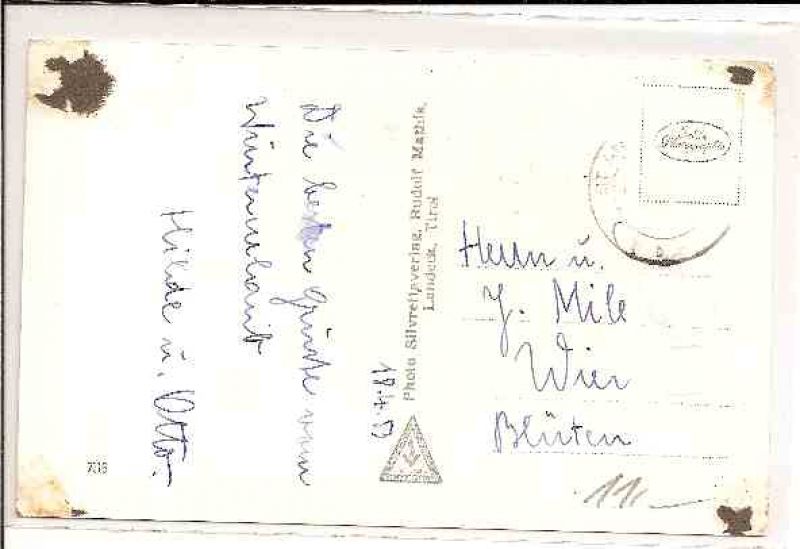 Die besten Grüsse vom
Winterurlaub
Hilde u. Otto.
Photo Silvrettaverlag, Rudolf Mathis,
Landeck, Tirol
Herrn u.
Mile
Wier
Blüten
11